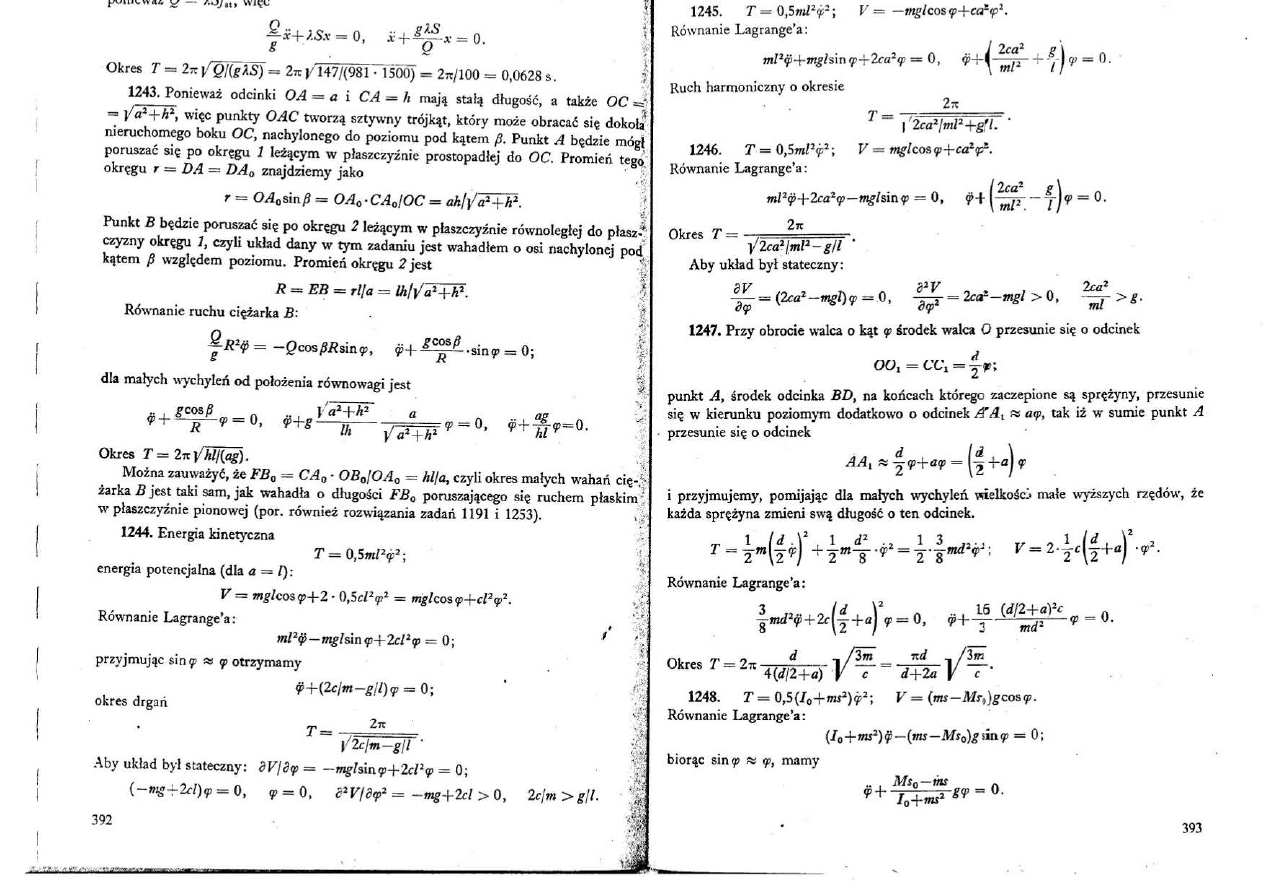 ponieważ Q = λSf_st, więc
Q/g ẍ+λSx = 0, ẍ + gλS/Q x = 0.
Okres T = 2π√Q/(gλS) = 2π√147/(981 · 1500) = 2π/100 = 0,0628 s.
1243. Ponieważ odcinki OA = a i CA = h mają stałą długość, a także OC =
= √a²+h², więc punkty OAC tworzą sztywny trójkąt, który może obracać się dokoła
nieruchomego boku OC, nachylonego do poziomu pod kątem β. Punkt A będzie mógł
poruszać się po okręgu 1 leżącym w płaszczyźnie prostopadłej do OC. Promień tego
okręgu r = DA = DA₀ znajdziemy jako
r = OA₀sinβ = OA₀·CA₀/OC = ah/√a²+h².
Punkt B będzie poruszać się po okręgu 2 leżącym w płaszczyźnie równoległej do płasz-
czyzny okręgu 1, czyli układ dany w tym zadaniu jest wahadłem o osi nachylonej pod
kątem β względem poziomu. Promień okręgu 2 jest
R = EB = rl/a = lh/√a²+h².
Równanie ruchu ciężarka B:
Q/g R²φ̈ = −QcosβRsinφ, φ̈ + gcosβ/R ·sinφ = 0;
dla małych wychyleń od położenia równowagi jest
φ̈ + gcosβ/R φ = 0, φ̈+g √a²+h²/lh a/√a²+h² φ = 0, φ̈ + ag/hl φ=0.
Okres T = 2π√hl/(ag).
Można zauważyć, że FB₀ = CA₀ · OB₀/OA₀ = hl/a, czyli okres małych wahań cię-
żarka B jest taki sam, jak wahadła o długości FB₀ poruszającego się ruchem płaskim
w płaszczyźnie pionowej (por. również rozwiązania zadań 1191 i 1253).
1244. Energia kinetyczna
T = 0,5ml²φ̇²;
energia potencjalna (dla a = l):
V = mglcosφ+2 · 0,5cl²φ² = mglcosφ+cl²φ².
Równanie Lagrange'a:
ml²φ̈−mglsinφ+2cl²φ = 0;
przyjmując sinφ ≈ φ otrzymamy
φ̈+(2c/m−g/l)φ = 0;
okres drgań
T = 2π/√2c/m−g/l.
Aby układ był stateczny: ∂V/∂φ = −mglsinφ+2cl²φ = 0;
(−mg+2cl)φ = 0, φ = 0, ∂²V/∂φ² = −mg+2cl > 0, 2c/m > g/l.
392
1245. T = 0,5ml²φ̇²; V = −mglcosφ+ca²φ².
Równanie Lagrange'a:
ml²φ̈+mglsinφ+2ca²φ = 0, φ̈+(2ca²/ml² + g/l)φ = 0.
Ruch harmoniczny o okresie
T = 2π/√2ca²/ml²+g/l.
1246. T = 0,5ml²φ̇²; V = mglcosφ+ca²φ².
Równanie Lagrange'a:
ml²φ̈+2ca²φ−mglsinφ = 0, φ̈+(2ca²/ml² − g/l)φ = 0.
Okres T = 2π/√2ca²/ml²−g/l.
Aby układ był stateczny:
∂V/∂φ = (2ca²−mgl)φ = 0, ∂²V/∂φ² = 2ca²−mgl > 0, 2ca²/ml > g.
1247. Przy obrocie walca o kąt φ środek walca O przesunie się o odcinek
OO₁ = CC₁ = d/2 φ;
punkt A, środek odcinka BD, na końcach którego zaczepione są sprężyny, przesunie
się w kierunku poziomym dodatkowo o odcinek A'A₁ ≈ aφ, tak iż w sumie punkt A
przesunie się o odcinek
AA₁ ≈ d/2 φ+aφ = (d/2 +a)φ
i przyjmujemy, pomijając dla małych wychyleń wielkości małe wyższych rzędów, że
każda sprężyna zmieni swą długość o ten odcinek.
T = 1/2 m(d/2 φ̇)² + 1/2 m d²/8 ·φ̇² = 1/2 · 3/8 md²φ̇²; V = 2· 1/2 c(d/2 +a)² ·φ².
Równanie Lagrange'a:
3/8 md²φ̈+2c(d/2 +a)² φ = 0, φ̈+ 16/3 (d/2+a)²c/md² φ = 0.
Okres T = 2π d/4(d/2+a) √3m/c = πd/d+2a √3m/c.
1248. T = 0,5(I₀+ms²)φ̇²; V = (ms−Ms₀)gcosφ.
Równanie Lagrange'a:
(I₀+ms²)φ̈−(ms−Ms₀)g sinφ = 0;
biorąc sinφ ≈ φ, mamy
φ̈ + Ms₀−ms/I₀+ms² gφ = 0.
393